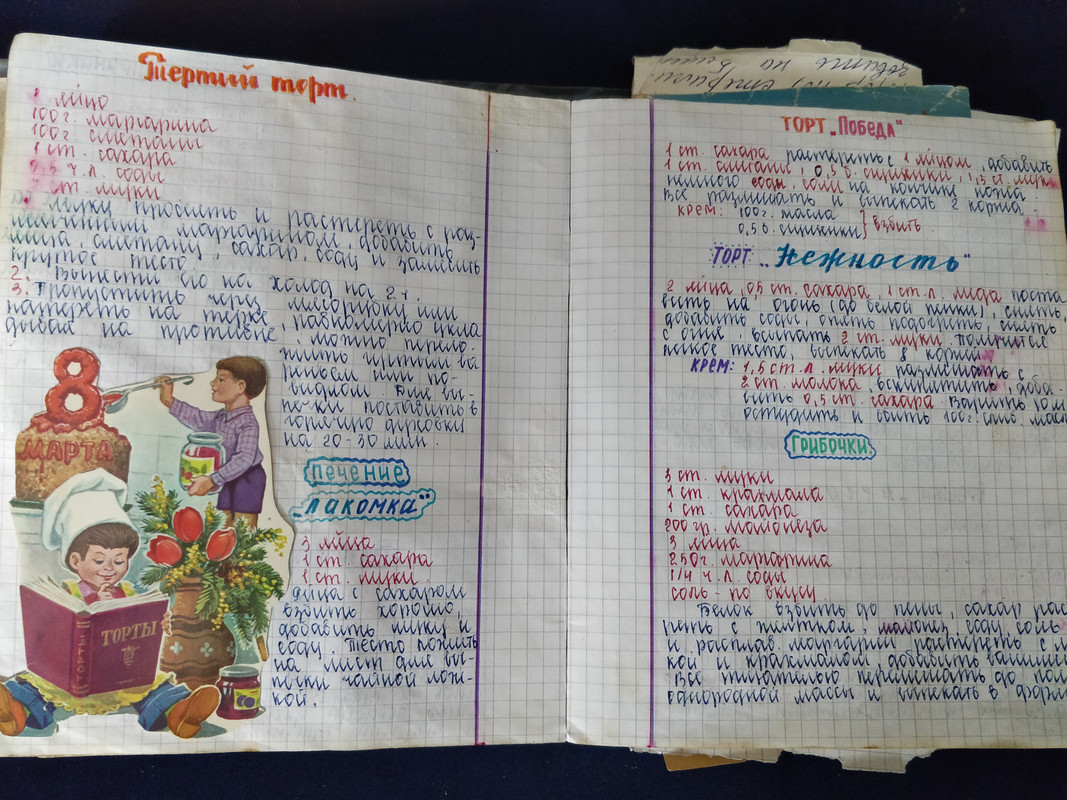 Тертий торт
1 яйцо
100 г. маргарина
100 г. сметаны
1 ст. сахара
0,5 ч.л. соды
ст. муки
муку просеять и растереть с раз-
мягченным маргарином, добавить
яйца, сметану, сахар, соду и замесить
крутое тесто.
2. Вынести его на холод на 2 ч.
3. Пропустить через мясорубку или
натереть на терке, равномерно укла
дывая на противне, можно перело-
жить густым ва
реньем или по-
видлом. Для вы-
печки поставить в
горячую духовку
на 20-30 мин.
8
МАРТА
ТОРТЫ
ТОРТЫ
Печение
"Лакомка"
3 яйца
1 ст. сахара
1 ст. муки.
Яйца с сахаром
взбить хорошо,
добавить муку и
соду. Тесто ложить
на лист для вы-
печки чайной лож-
кой.
ТОРТ „Победа"
1 ст. сахара растереть с 1 яйцом, добавить
1 ст. сметаны, 0,5 б. сгущенки, 1,5 ст. муки
немного соды, соли на кончике ножа.
Все размешать и выпекать 2 коржа.
крем: 100 г. масла
0,5 б. сгущенки } взбить
ТОРТ „Нежность"
2 яйца, 0,5 ст. сахара, 1 ст. л. меда поста
вить на огонь (до белой пенки), снять,
добавить соды, опять подогреть, снять
с огня, всыпать 2 ст. муки, получится
тесто, выпекать 8 коржей
крем: 1,5 ст. л. муки размешать с
2 ст. молока, вскипятить, доба-
вить 0,5 ст. сахара. Варить
остудить и взбить 100 г. масл
Грибочки.
3 ст. муки
1 ст. крахмала
1 ст. сахара
200 гр. майонеза
3 яйца
250 г. маргарина
1/4 ч. л. соды
соль - по вкусу
Белок взбить до пены, сахар рас
реть с желтком, майонез, соду, соль
и расплав. маргарин растереть с м
кой и крахмалом, добавить ванилин
Все тщательно перемешать до пол
однородной массы и выпекать в форм